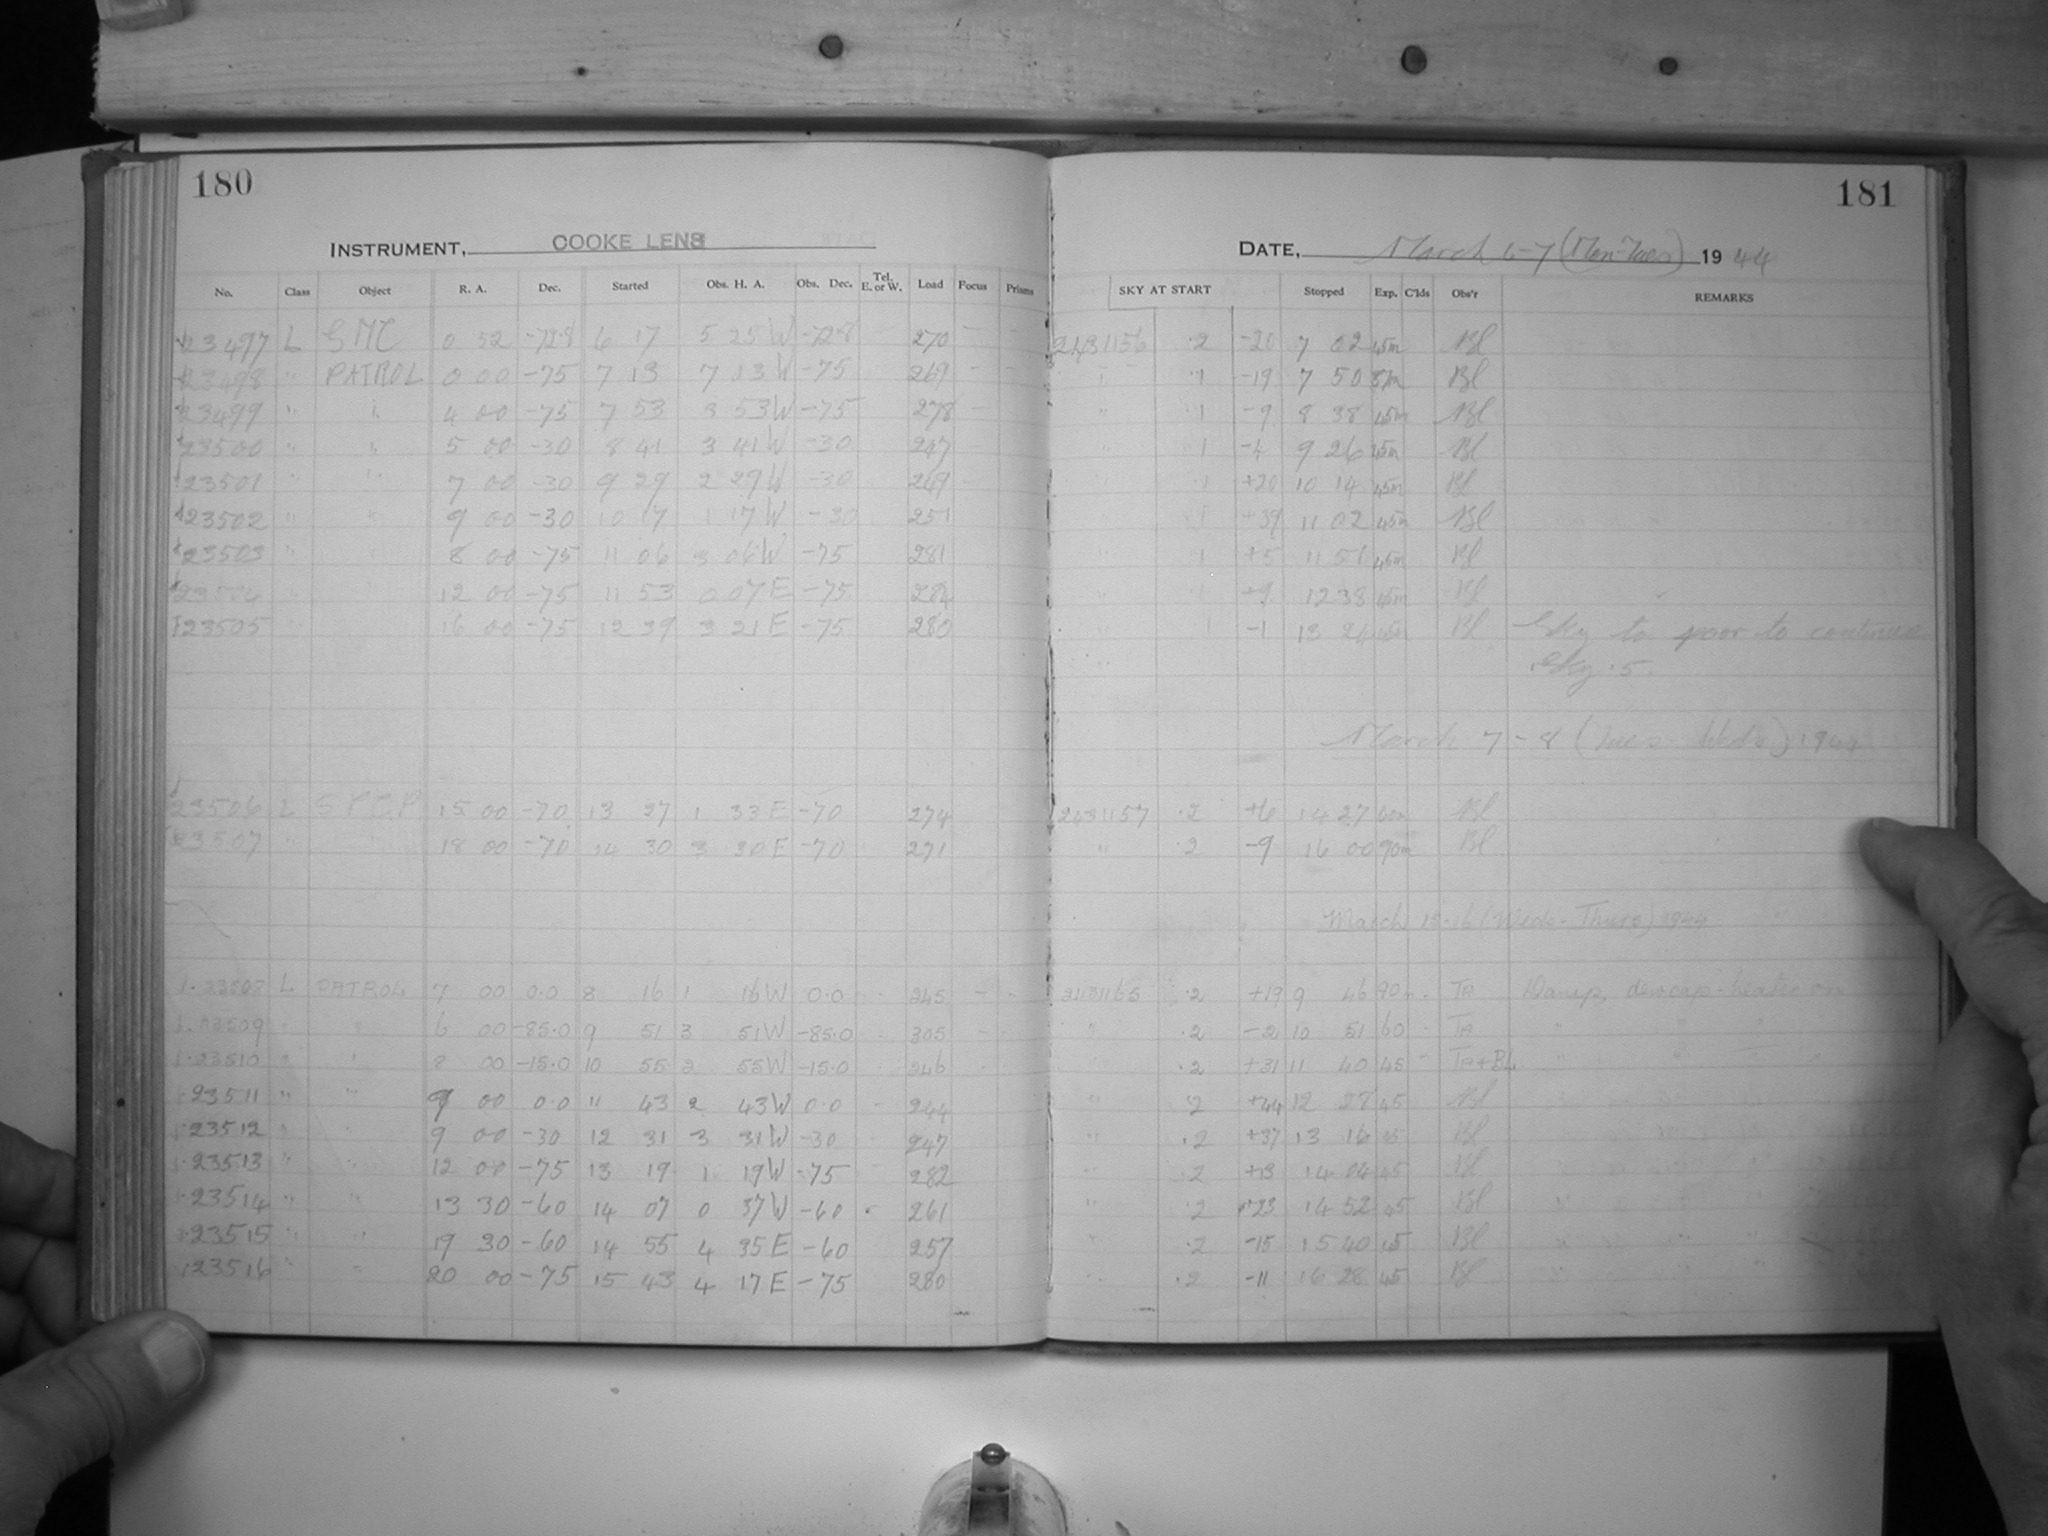 180
INSTRUMENT, COOKE LENS
No. Class Object R. A. Dec. Started Obs. H. A. Obs. Dec. Tel. E. or W. Load Focus Prisms
23497 L SMC 0 52 -72.8 6 17 5 25 W -72.8 270
23498 " PATROL 0 00 -75 7 13 7 13 W -75 269
23499 " " 4 00 -75 7 53 3 53 W -75 278
23500 " " 5 00 -30 8 41 3 41 W -30 247
23501 " " 7 00 -30 9 29 2 29 W -30 249
23502 " " 9 00 -30 10 17 1 17 W -30 251
23503 " 8 00 -75 11 06 3 06 W -75 281
23504 " 12 00 -75 11 53 0 07 E -75 284
23505 16 00 -75 12 39 3 21 E -75 280
23506 L 15 00 -70 13 27 1 33 E -70 274
23507 " 18 00 -70 14 30 3 30 E -70 271
23508 L PATROL 7 00 0.0 8 16 1 16 W 0.0 245
23509 " " 6 00 -85.0 9 51 3 51 W -85.0 305
23510 " " 8 00 -15.0 10 55 2 55 W -15.0 246
23511 " " 9 00 0.0 11 43 2 43 W 0.0 244
23512 " " 9 00 -30 12 31 3 31 W -30 247
23513 " " 12 00 -75 13 19 1 19 W -75 282
23514 " " 13 30 -60 14 07 0 37 W -60 261
23515 " " 19 30 -60 14 55 4 35 E -60 257
23516 " " 20 00 -75 15 43 4 17 E -75 280
181
DATE, March 6-7 (Mon-Tues) 1944
SKY AT START Stopped Exp. C'lds Obs'r REMARKS
2431156 .2 -20 7 02 45m Bl
" .1 -19 7 50 37m Bl
" .1 -9 8 38 45m Bl
" .1 -4 9 26 45m Bl
" .1 +20 10 14 45m Bl
" .1 +39 11 02 45m Bl
" .1 +5 11 51 45m Bl
" .1 +9 12 38 45m Bl
" .1 -1 13 24 45m Bl Sky to poor to continue
Sky .5.
March 7-8 (Tues-Weds) 1944
2431157 .2 +6 14 27 60m Bl
" .2 -9 16 00 90m Bl
March 15-16 (Weds-Thurs) 1944
2431165 .2 +19 9 46 90 Damp, dewcap-heater on
" .2 -2 10 51 60
" .2 +31 11 40 45
" .2 +44 12 28 45 Bl
" .2 +37 13 16 45 Bl
" .2 +13 14 04 45 Bl
" .2 +23 14 52 45 Bl
" .2 -15 15 40 45 Bl
" .2 -11 16 28 45 Bl